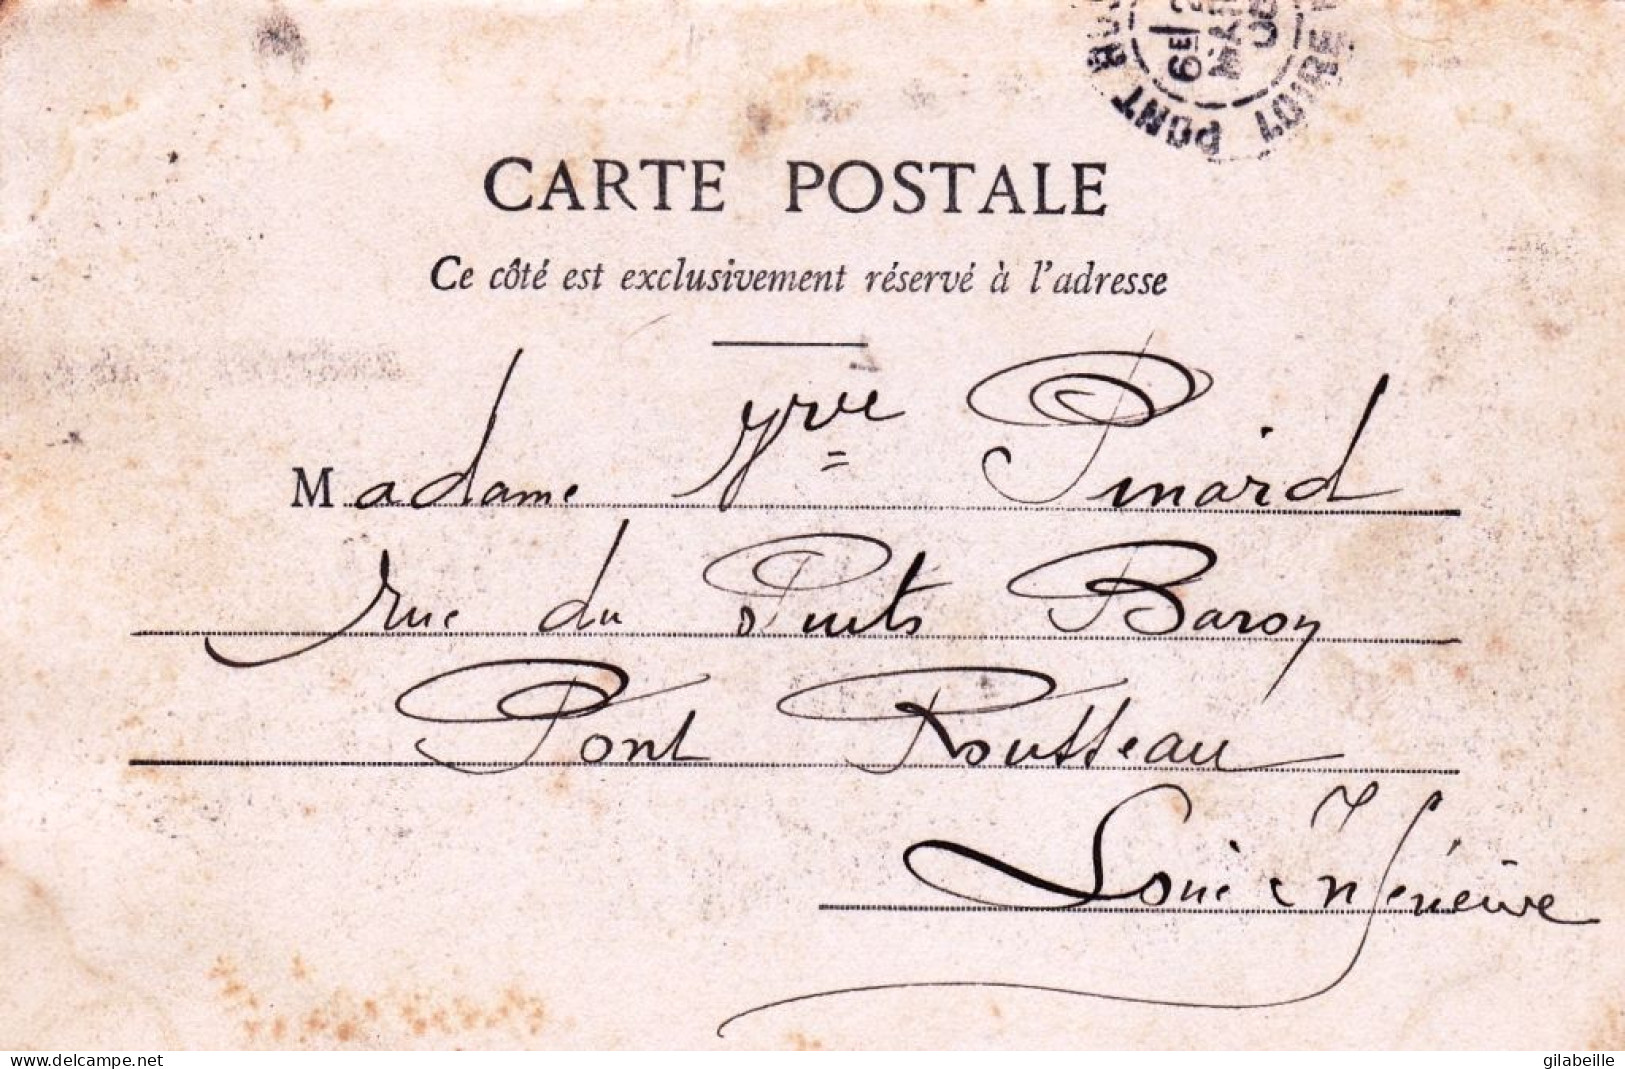 6E 2
MAR
PONT ROUS LOIRE
CARTE POSTALE
Ce côté est exclusivement réservé à l'adresse
Madame Pinard
rue du Puits Baron
Pont Rousseau
Loire Inférieure
delcampe.net
gilabeille